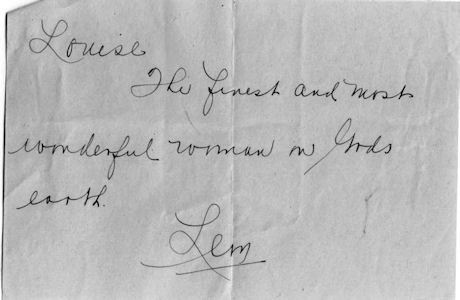 Louise
The finest and most
wonderful woman on Gods
earth.
Lem